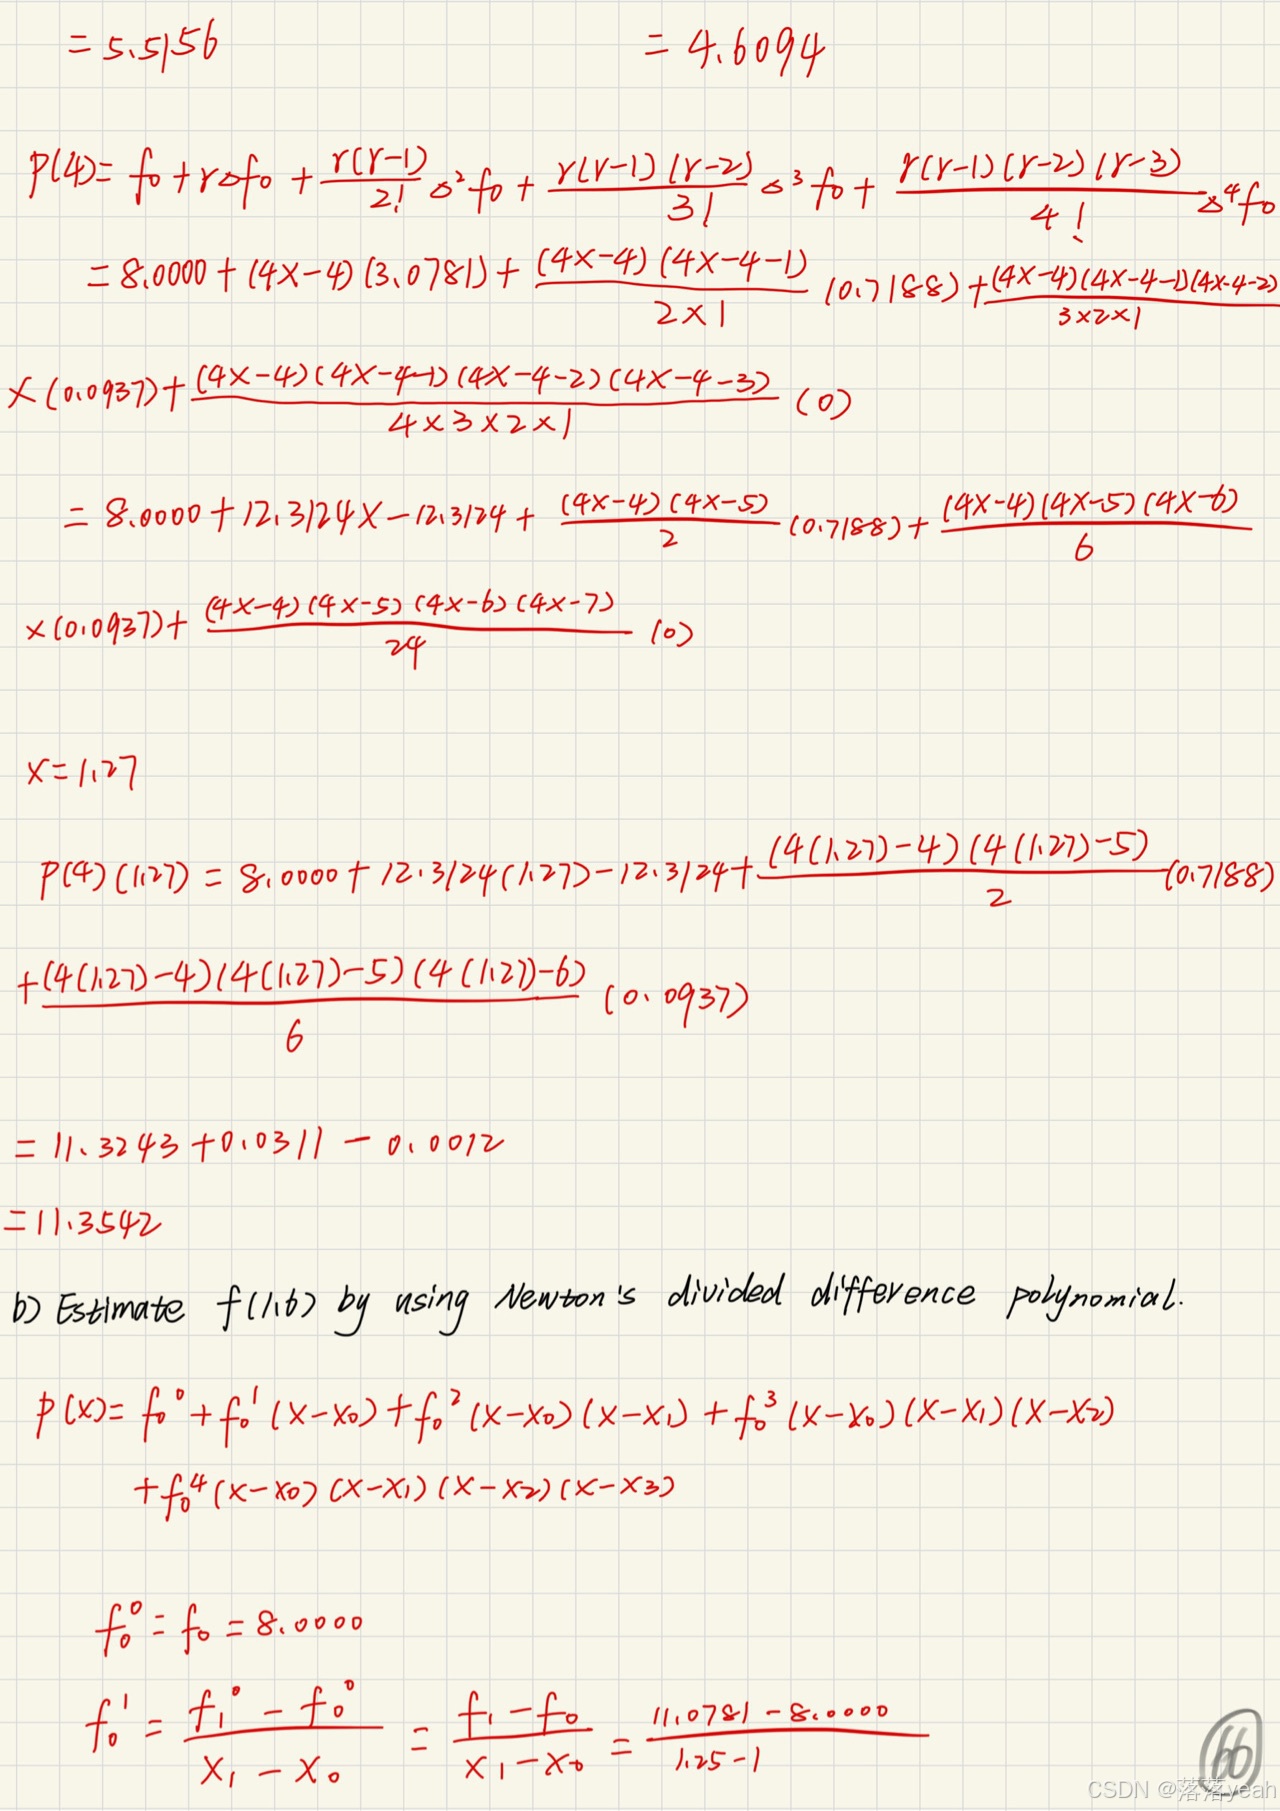 = 5.5156 = 4.6094
P(4)= f₀ + r△f₀ + r(r-1)/2! △²f₀ + r(r-1)(r-2)/3! △³f₀ + r(r-1)(r-2)(r-3)/4! △⁴f₀
= 8.0000 + (4x-4)(3.0781) + (4x-4)(4x-4-1)/2×1 (0.7188) + (4x-4)(4x-4-1)(4x-4-2)/3×2×1
×(0.0937) + (4x-4)(4x-4-1)(4x-4-2)(4x-4-3)/4×3×2×1 (0)
= 8.0000 + 12.3124x - 12.3124 + (4x-4)(4x-5)/2 (0.7188) + (4x-4)(4x-5)(4x-6)/6
×(0.0937) + (4x-4)(4x-5)(4x-6)(4x-7)/24 (0)
x=1.27
P(4)(1.27) = 8.0000 + 12.3124(1.27) - 12.3124 + (4(1.27)-4)(4(1.27)-5)/2 (0.7188)
+ (4(1.27)-4)(4(1.27)-5)(4(1.27)-6)/6 (0.0937)
= 11.3243 + 0.0311 - 0.0012
= 11.3542
b) Estimate f(1.6) by using Newton's divided difference polynomial.
P(x)= f₀⁰ + f₀¹(x-x₀) + f₀²(x-x₀)(x-x₁) + f₀³(x-x₀)(x-x₁)(x-x₂)
+ f₀⁴(x-x₀)(x-x₁)(x-x₂)(x-x₃)
f₀⁰ = f₀ = 8.0000
f₀¹ = f₁⁰ - f₀⁰/x₁ - x₀ = f₁ - f₀/x₁ - x₀ = 11.0781 - 8.0000/1.25 - 1
CSDN @落落yeah